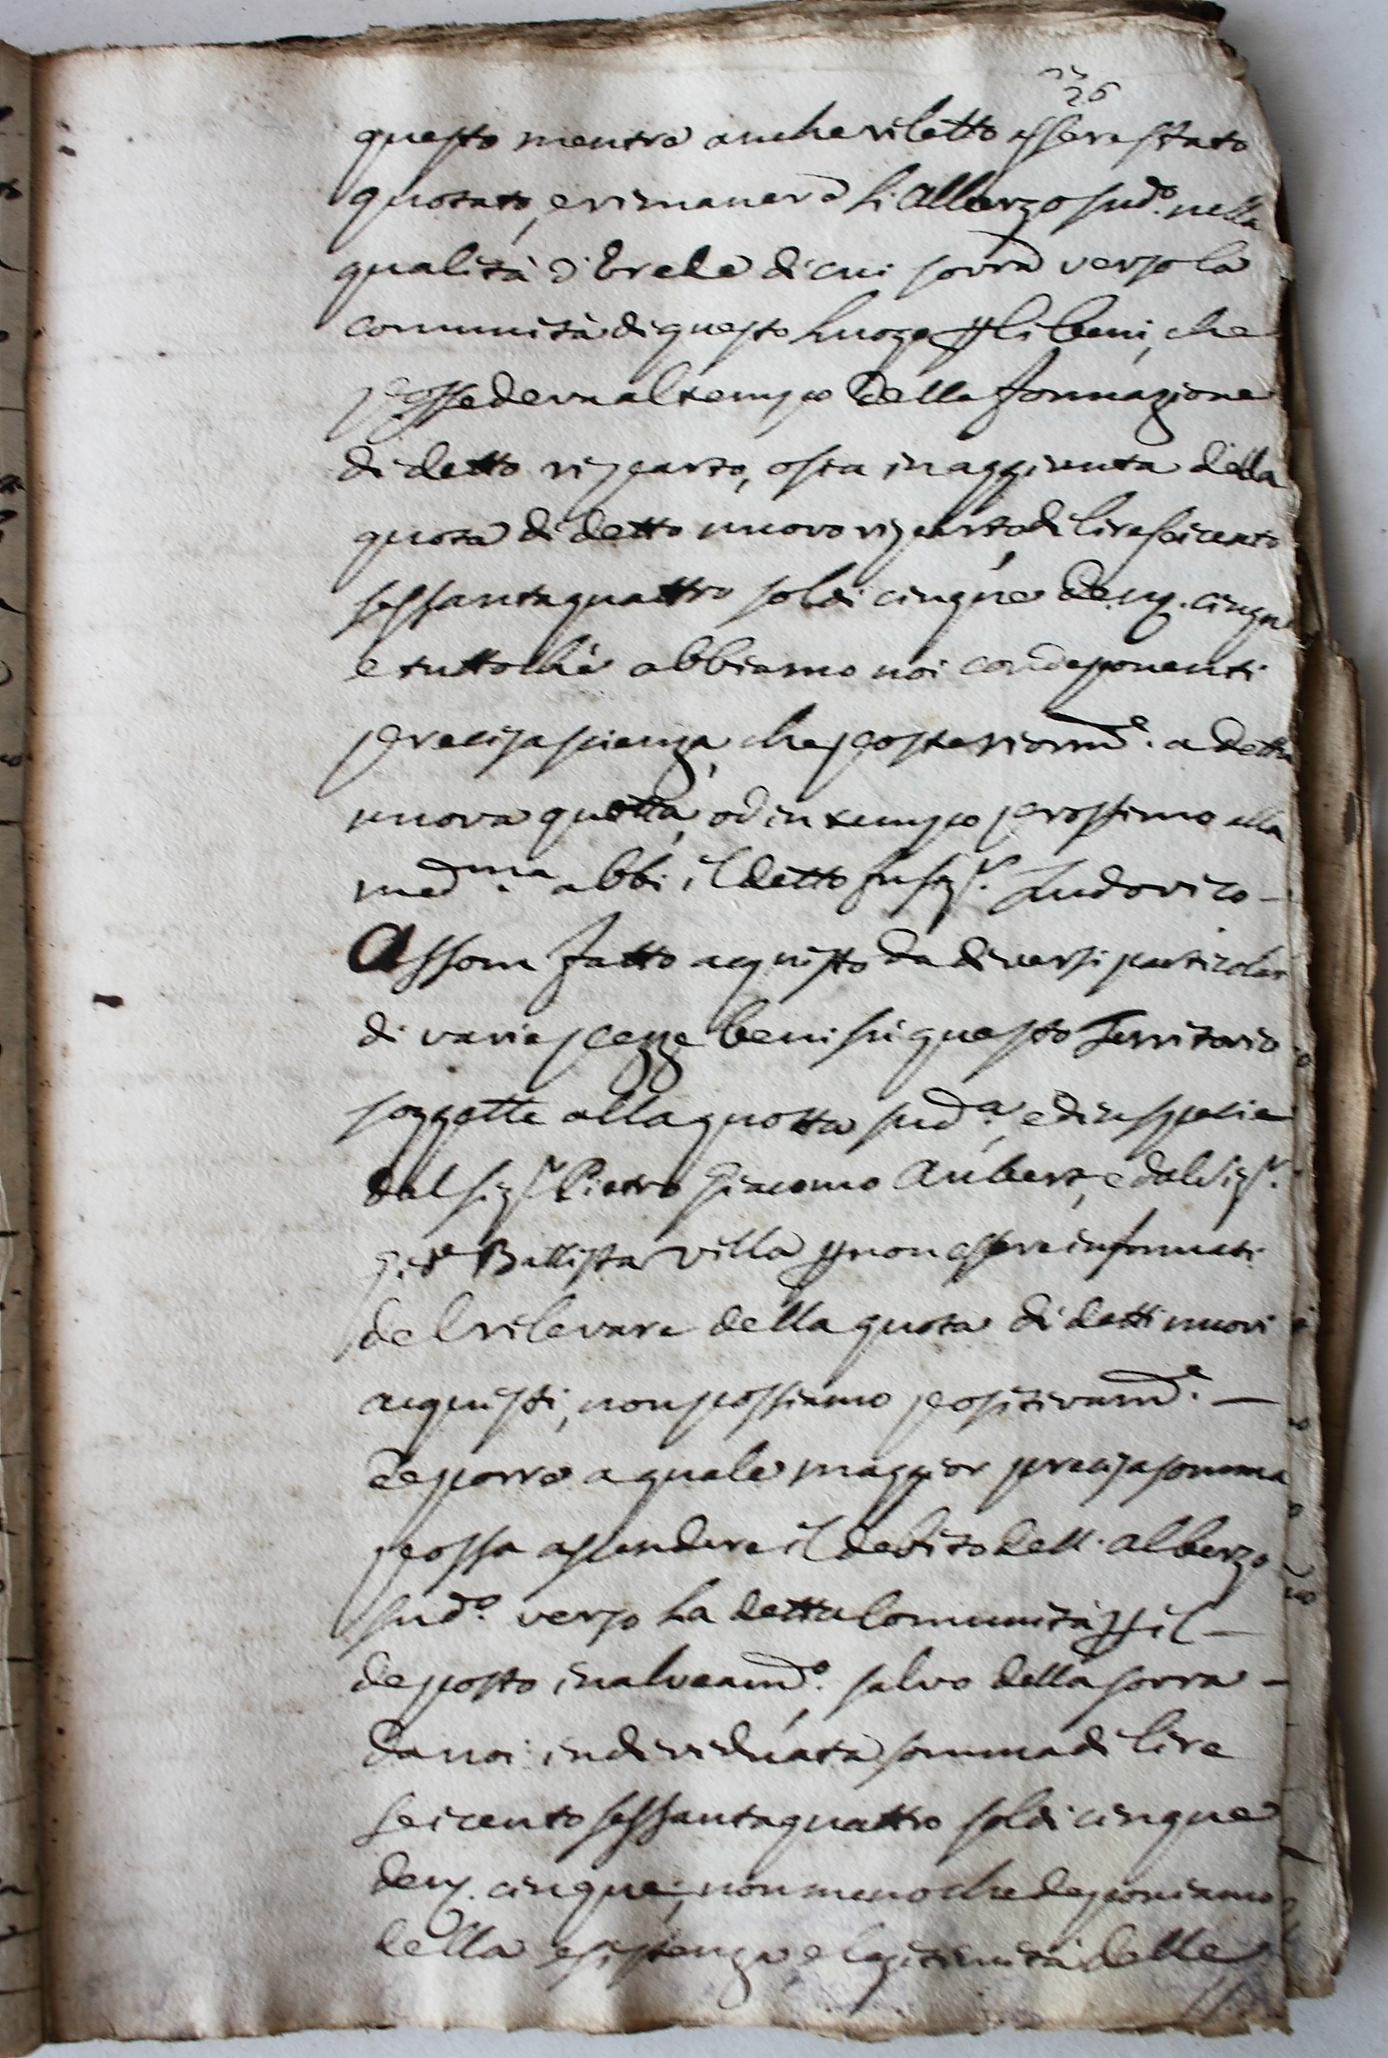 26
questo mentre anche riletto essere stato
quotato, e rimanere li Alberzo sud.º nella
qualità d'Erede di cui sovra verso la
communità di questo Luogo p li beni, che
possedeva al tempo della formazione
di detto riparto, osia in aggiunta della
quota di detto nuovo riparto, di lire seicento
sessantaquattro soldi cinque den. cinque
e tuttoché abbiamo noi condeponenti
precisa scienza, che posteriorm.e a detta
nuova quotta, od in tempo prossimo alla
med.ma abbi il detto fu sig.r Ludovico
Assom fatto acquisto da diversi particolari
di varie pezze beni su questo Territorio
soggette alla quotta sud.a, ed in specie
dal sig.r Pietro Giacomo Aubert, e dal sig.r
Gio Battista Villa p non essere informati
del rilevare della quota di detti nuovi
acquisti, non possiamo positivam.e
deporre a quale maggior precisa somma
possa ascendere il debito dell'alberzo
sud.º verso la detta Comunità p il
deposto, salvo della sovra
da noi individuata somma di lire
seicento sessantaquattro soldi cinque
den. cinque; non meno che deponiamo
della esistenza, e legitimità delle